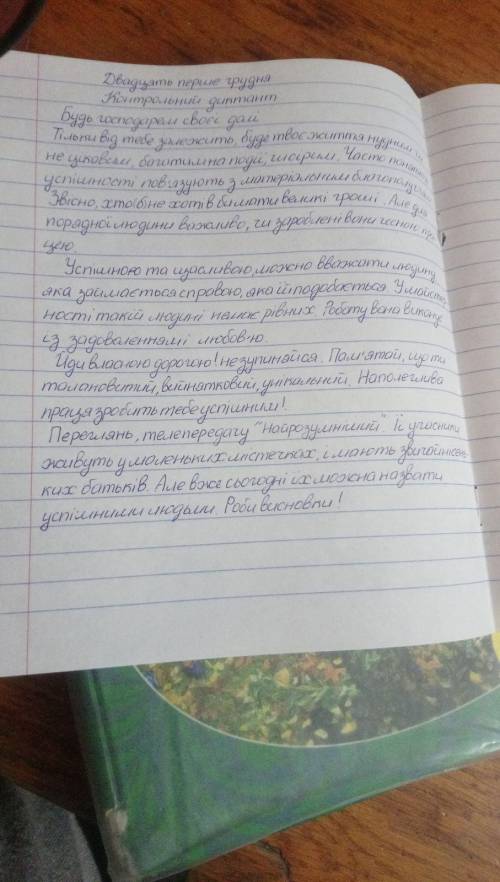 Двадцять перше грудня
Контрольний диктант
Будь господарем своєї долі
Тільки від тебе залежить, буде твоє життя нудним чи
не цікавим, багатим на події, щасрим. Часто поняття
успішності пов'язують з матеріальним благополуччям.
Звісно, хто б не хотів би мати великі гроші. Але для
порядної людини важливо, чи зароблені вони чесною пра
цею.
Успішною та щасливою, можно вважати людину
яка займається справою, яка їй подобається. У майстер
ності такій людині немає рівних. Роботу вона виконує
із задоволенням і любов'ю.
Йди власною дорогою! не зупиняйся. Пам'ятай, що ти
талановитий, вийнятковий, унікальний. Наполеглива
праця зробить тебе успішним!
Переглянь, телепередачу "Найрозумніший". Її учасники
живуть у маленьких містечках, і мають звичайнісінь
ких батьків. Але вже сьогодні їх можна назвати
успішними людьми. Роби висновки!